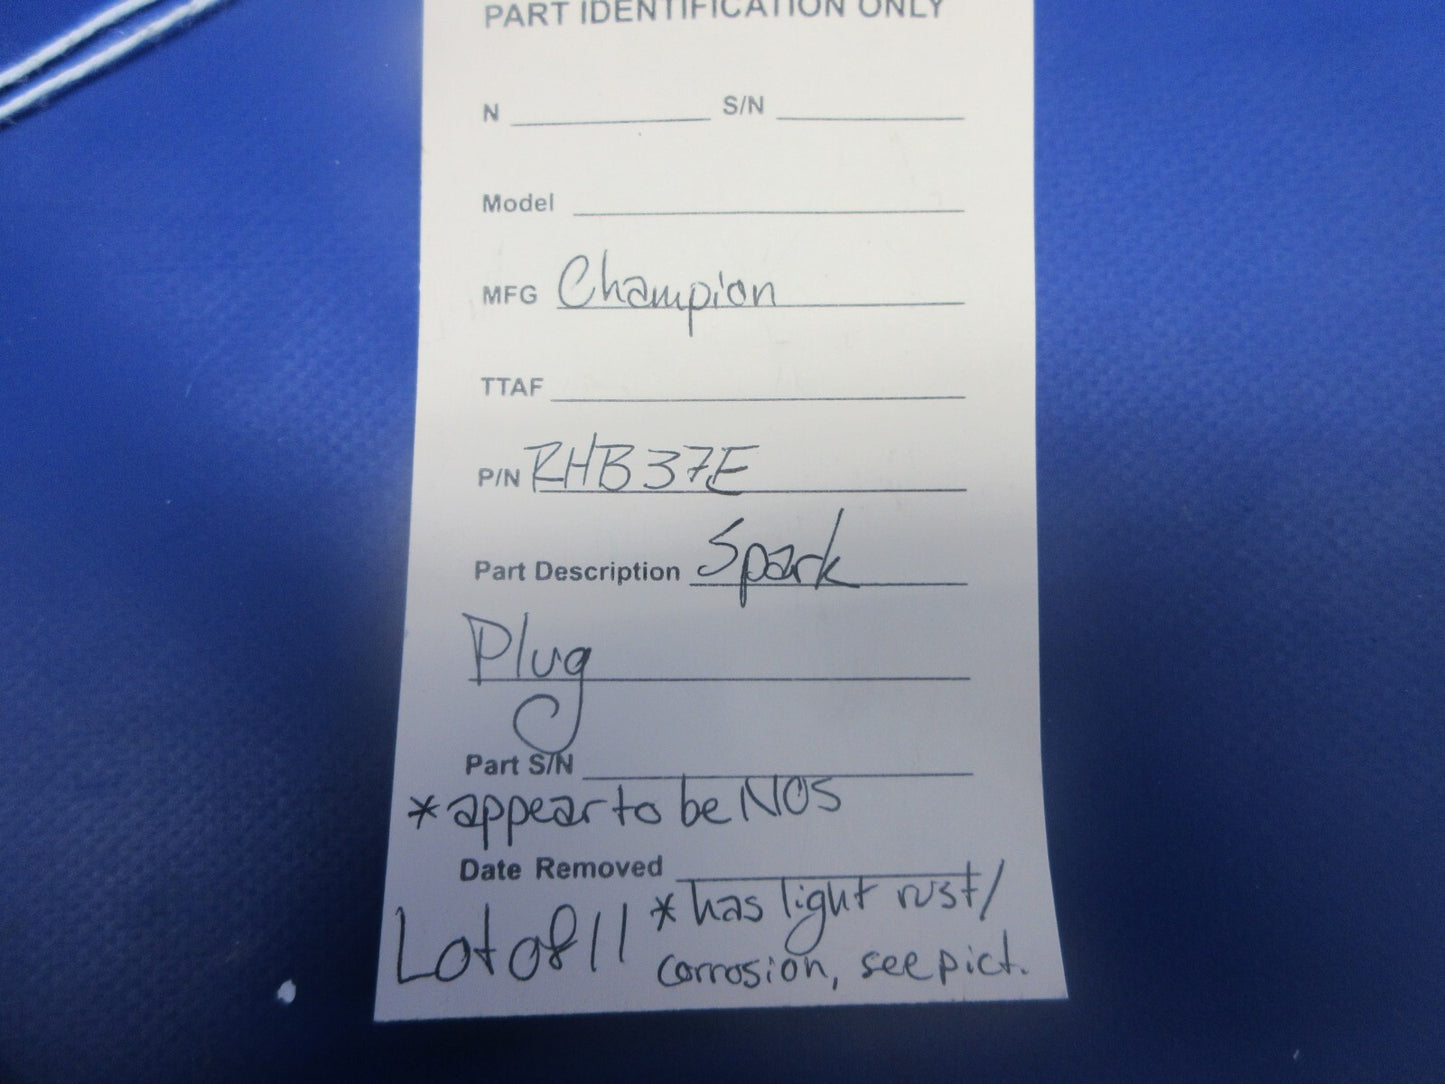 PART IDENTIFICATION ONLY
N S/N
Model
MFG Champion
TTAF
P/N RHB37E
Part Description Spark
Plug
Part S/N
*appear to be NOS
Date Removed
Lot of 11 *has light rust/
corrosion, see pict.